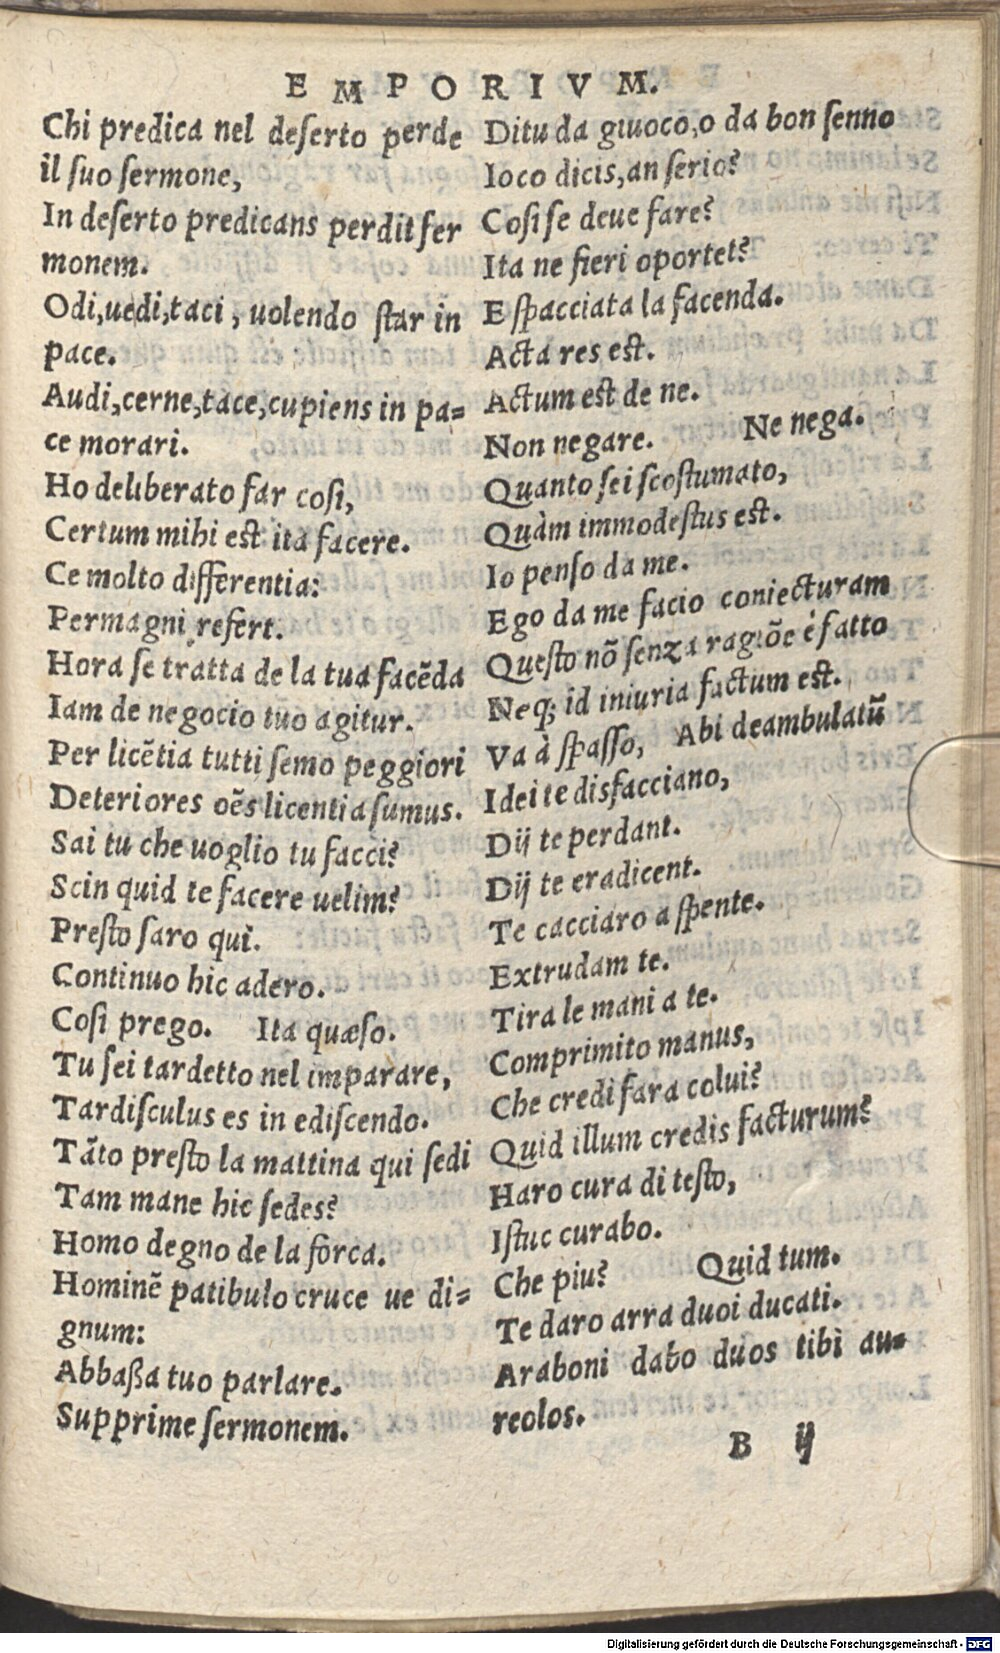 EMPORIVM.
Chi predica nel deſerto perde
il ſuo ſermone,
In deſerto predicans perdit ſer
monem.
Odi,uedi,taci, uolendo ſtar in
pace.
Audi,cerne,tace,cupiens in pa=
ce morari.
Ho deliberato far coſi,
Certum mihi est ita facere.
Ce molto differentia:
Permagni refert.
Hora ſe tratta de la tua facẽda
Iam de negocio tuo agitur.
Per licẽtia tutti ſemo peggiori
Deteriores oẽs licentia ſumus.
Sai tu che uoglio tu facci?
Scin quid te facere uelim?
Preſto ſaro quì.
Continuo hic adero.
Coſi prego. Ita quæſo.
Tu ſei tardetto nel imparare,
Tardiſculus es in ediſcendo.
Tãto preſto la mattina qui ſedi
Tam mane hic ſedes?
Homo degno de la forca.
Hominẽ patibulo cruce ue di=
gnum:
Abbaßa tuo parlare.
Supprime ſermonem.
Ditu da giuoco,o da bon ſenno
Ioco dicis,an ſerio?
Coſi ſe deue fare?
Ita ne fieri oportet?
E ſpacciata la facenda.
Acta res eſt.
Actum eſt de ne.
Non negare. Ne nega.
Quanto ſei ſcoſtumato,
Quàm immodeſtus eſt.
Io penſo da me.
Ego da me facio coniecturam
Queſto nõ ſenza ragiõe è fatto
Neq; id iniuria factum eſt.
Va à ſpaſſo, Abi deambulatũ
I dei te disfacciano,
Dij te perdant.
Dij te eradicent.
Te cacciaro a ſpente.
Extrudam te.
Tira le mani a te.
Comprimito manus,
Che credi fara colui?
Quid illum credis facturum?
Haro cura di teſto,
Iſtuc curabo.
Che piu? Quid tum.
Te daro arra duoi ducati.
Araboni dabo duos tibì au=
reolos.
B ij
Digitalisierung gefördert durch die Deutsche Forschungsgemeinschaft - DFG